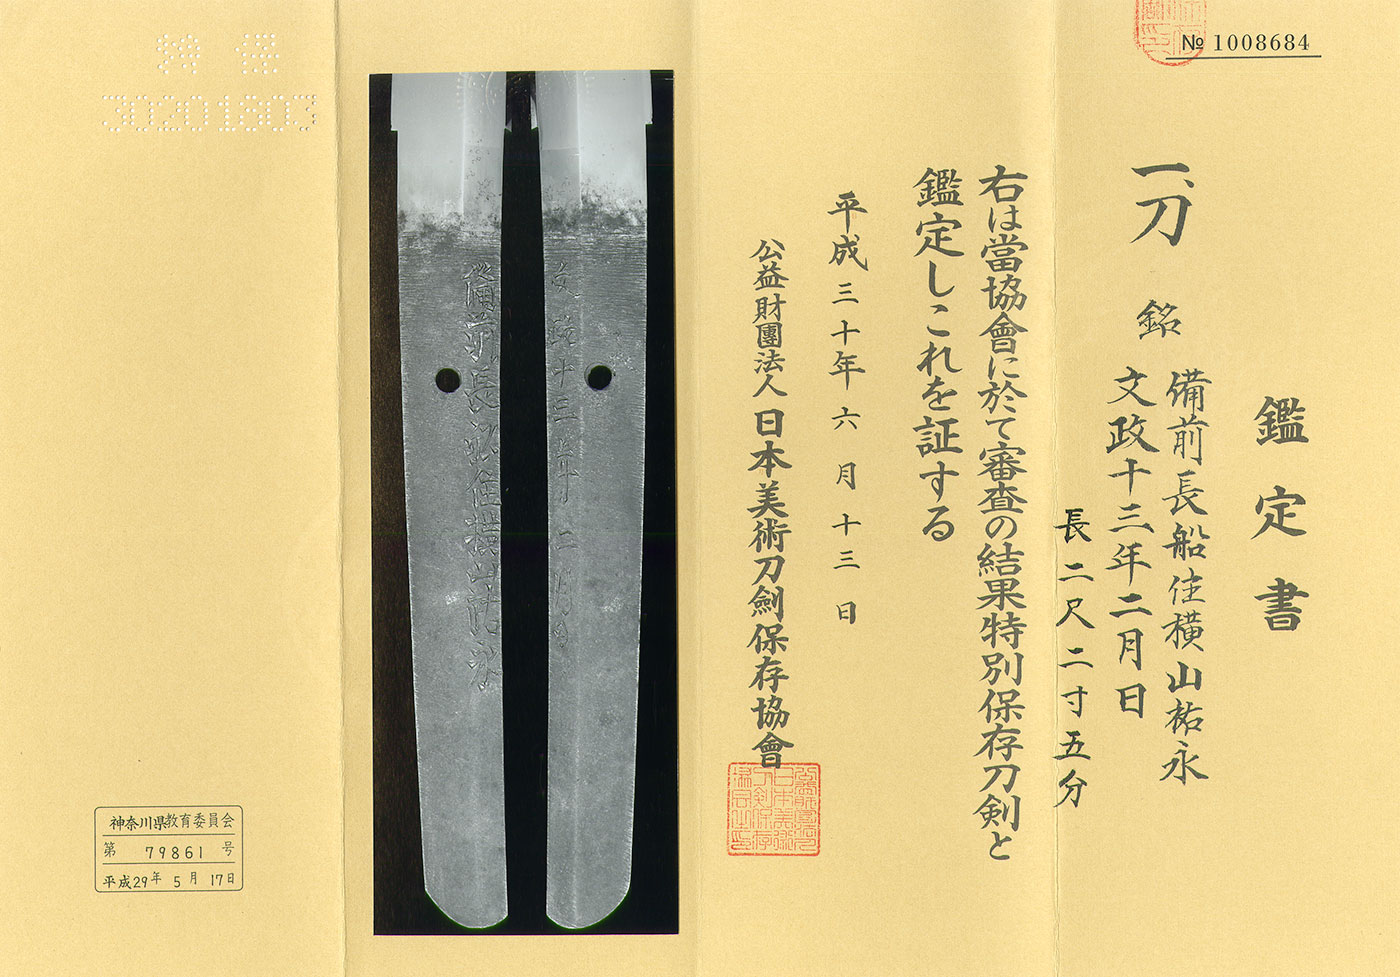 № 1008684
鑑定書
一、刀 銘 備前長船住横山祐永
文政十三年二月日
長二尺二寸五分
右は當協會に於て審査の結果特別保存刀剣と
鑑定しこれを証する
平成三十年六月十三日
公益財團法人 日本美術刀劍保存協會
備前長船住横山祐永
文政十三年二月日
特保
30201803
神奈川県教育委員会
第 79861 号
平成29年 5月 17日